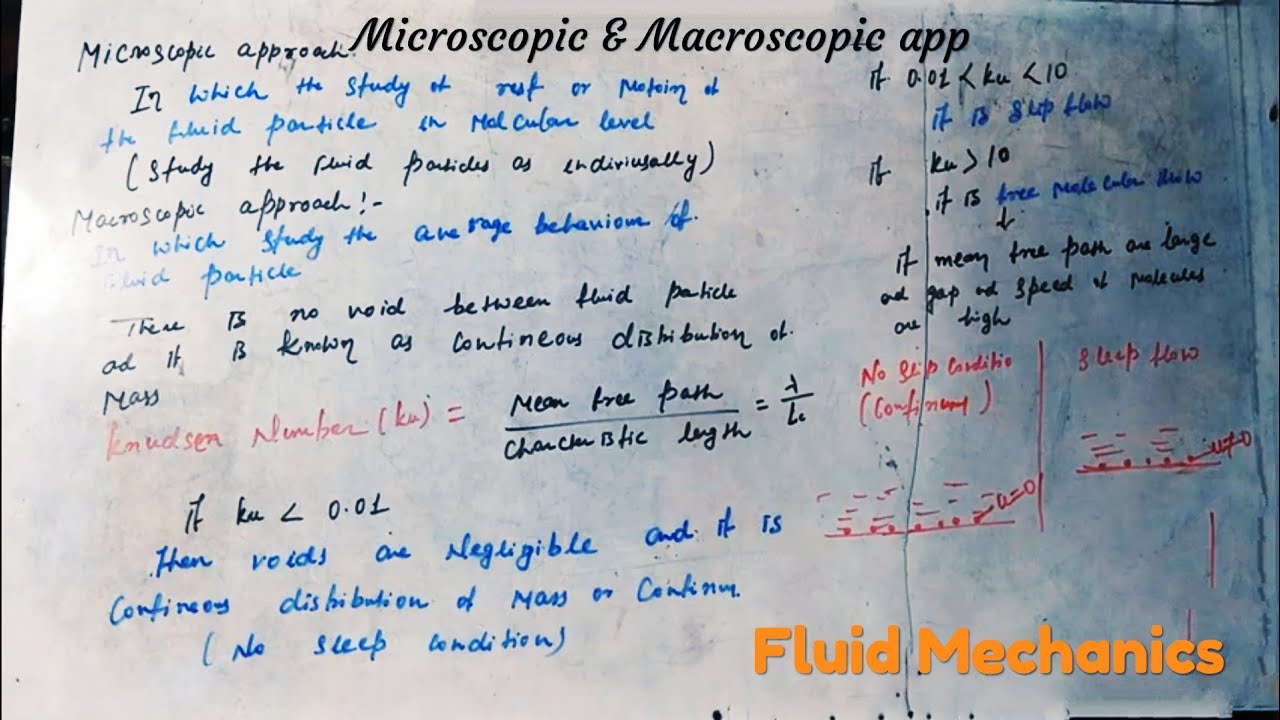 Microscopic & Macroscopic app
Microscopic approach:
In which the study of rest or Motoin of
the fluid particle in Molcular level
(Study the fluid particles as indiviusally)
Macroscopic approach!-
In which study the average behaviour of
fluid particle
There is no void between fluid particle
ad it is known as contineous distribution of
Mass
Knudsen Number (ku) = Mean free path / Charcteristic length = λ / Lc
if ku < 0.01
then voids are Negligible and it is
Contineous distribution of Mass or Continum.
(No sleep condition)
if 0.01 < ku < 10
it is slip flow
if ku > 10
it is free Molecular flow
↓
if mean free path are large
ad gap ad speed of Molecules
are high
No slip conditio
(Continum)
u=0
sleep flow
u≠0
Fluid Mechanics